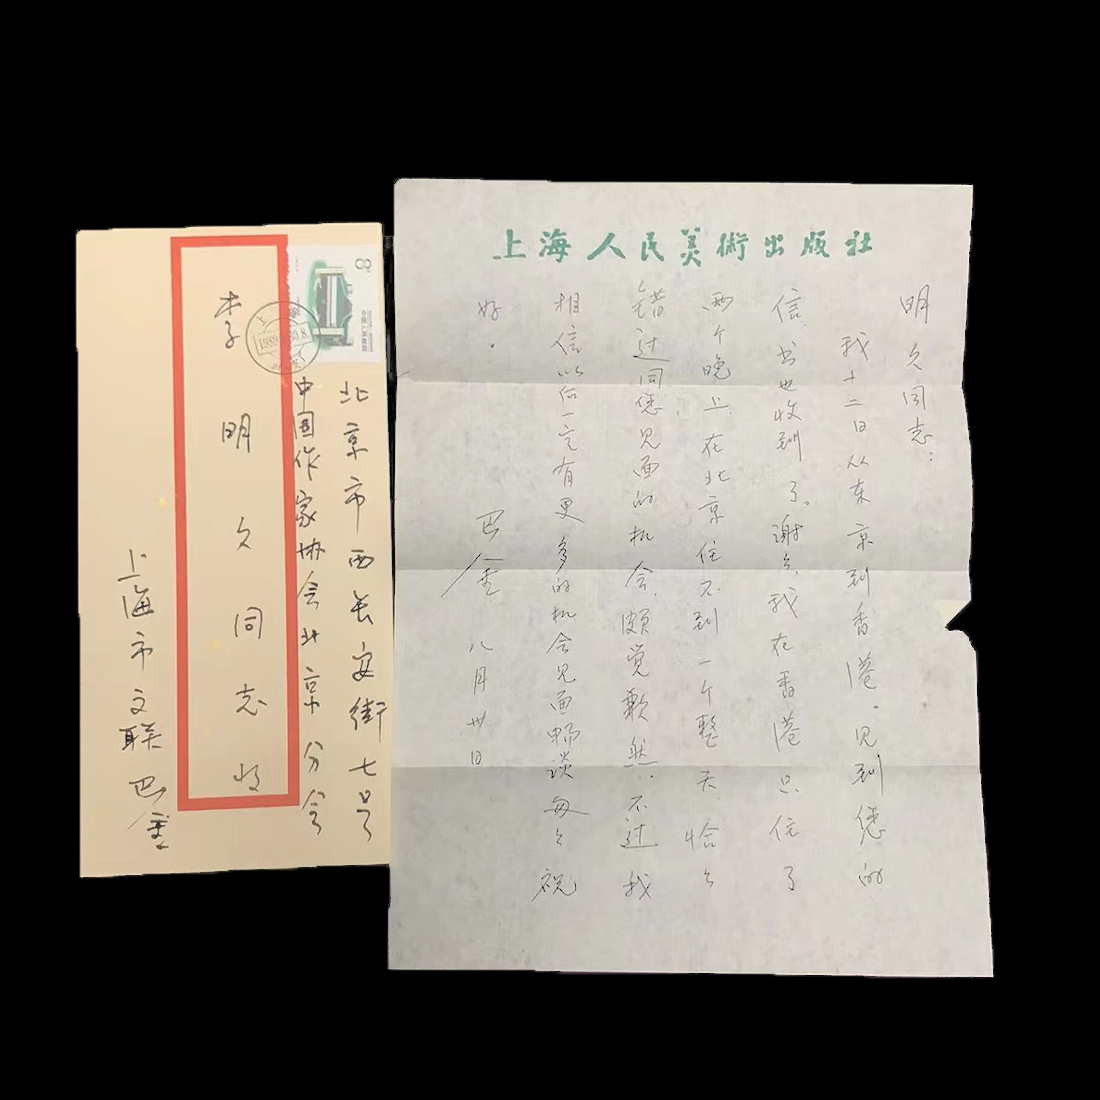 上海人民美術出版社
明久同志：
我十二日从东京到香港。见到您的
信，书也收到了。谢谢，我在香港只住了
两个晚上，在北京住不到一个整天，恰々
错过同您见面的机会，颇觉歉然。不过我
相信以后一定有更多的机会见面畅谈
祝
好．
巴金 八月卅日
北京市西长安街七号
中国作家协会北京分会
李明久同志收
上海市文联巴金
8
1989
30.8